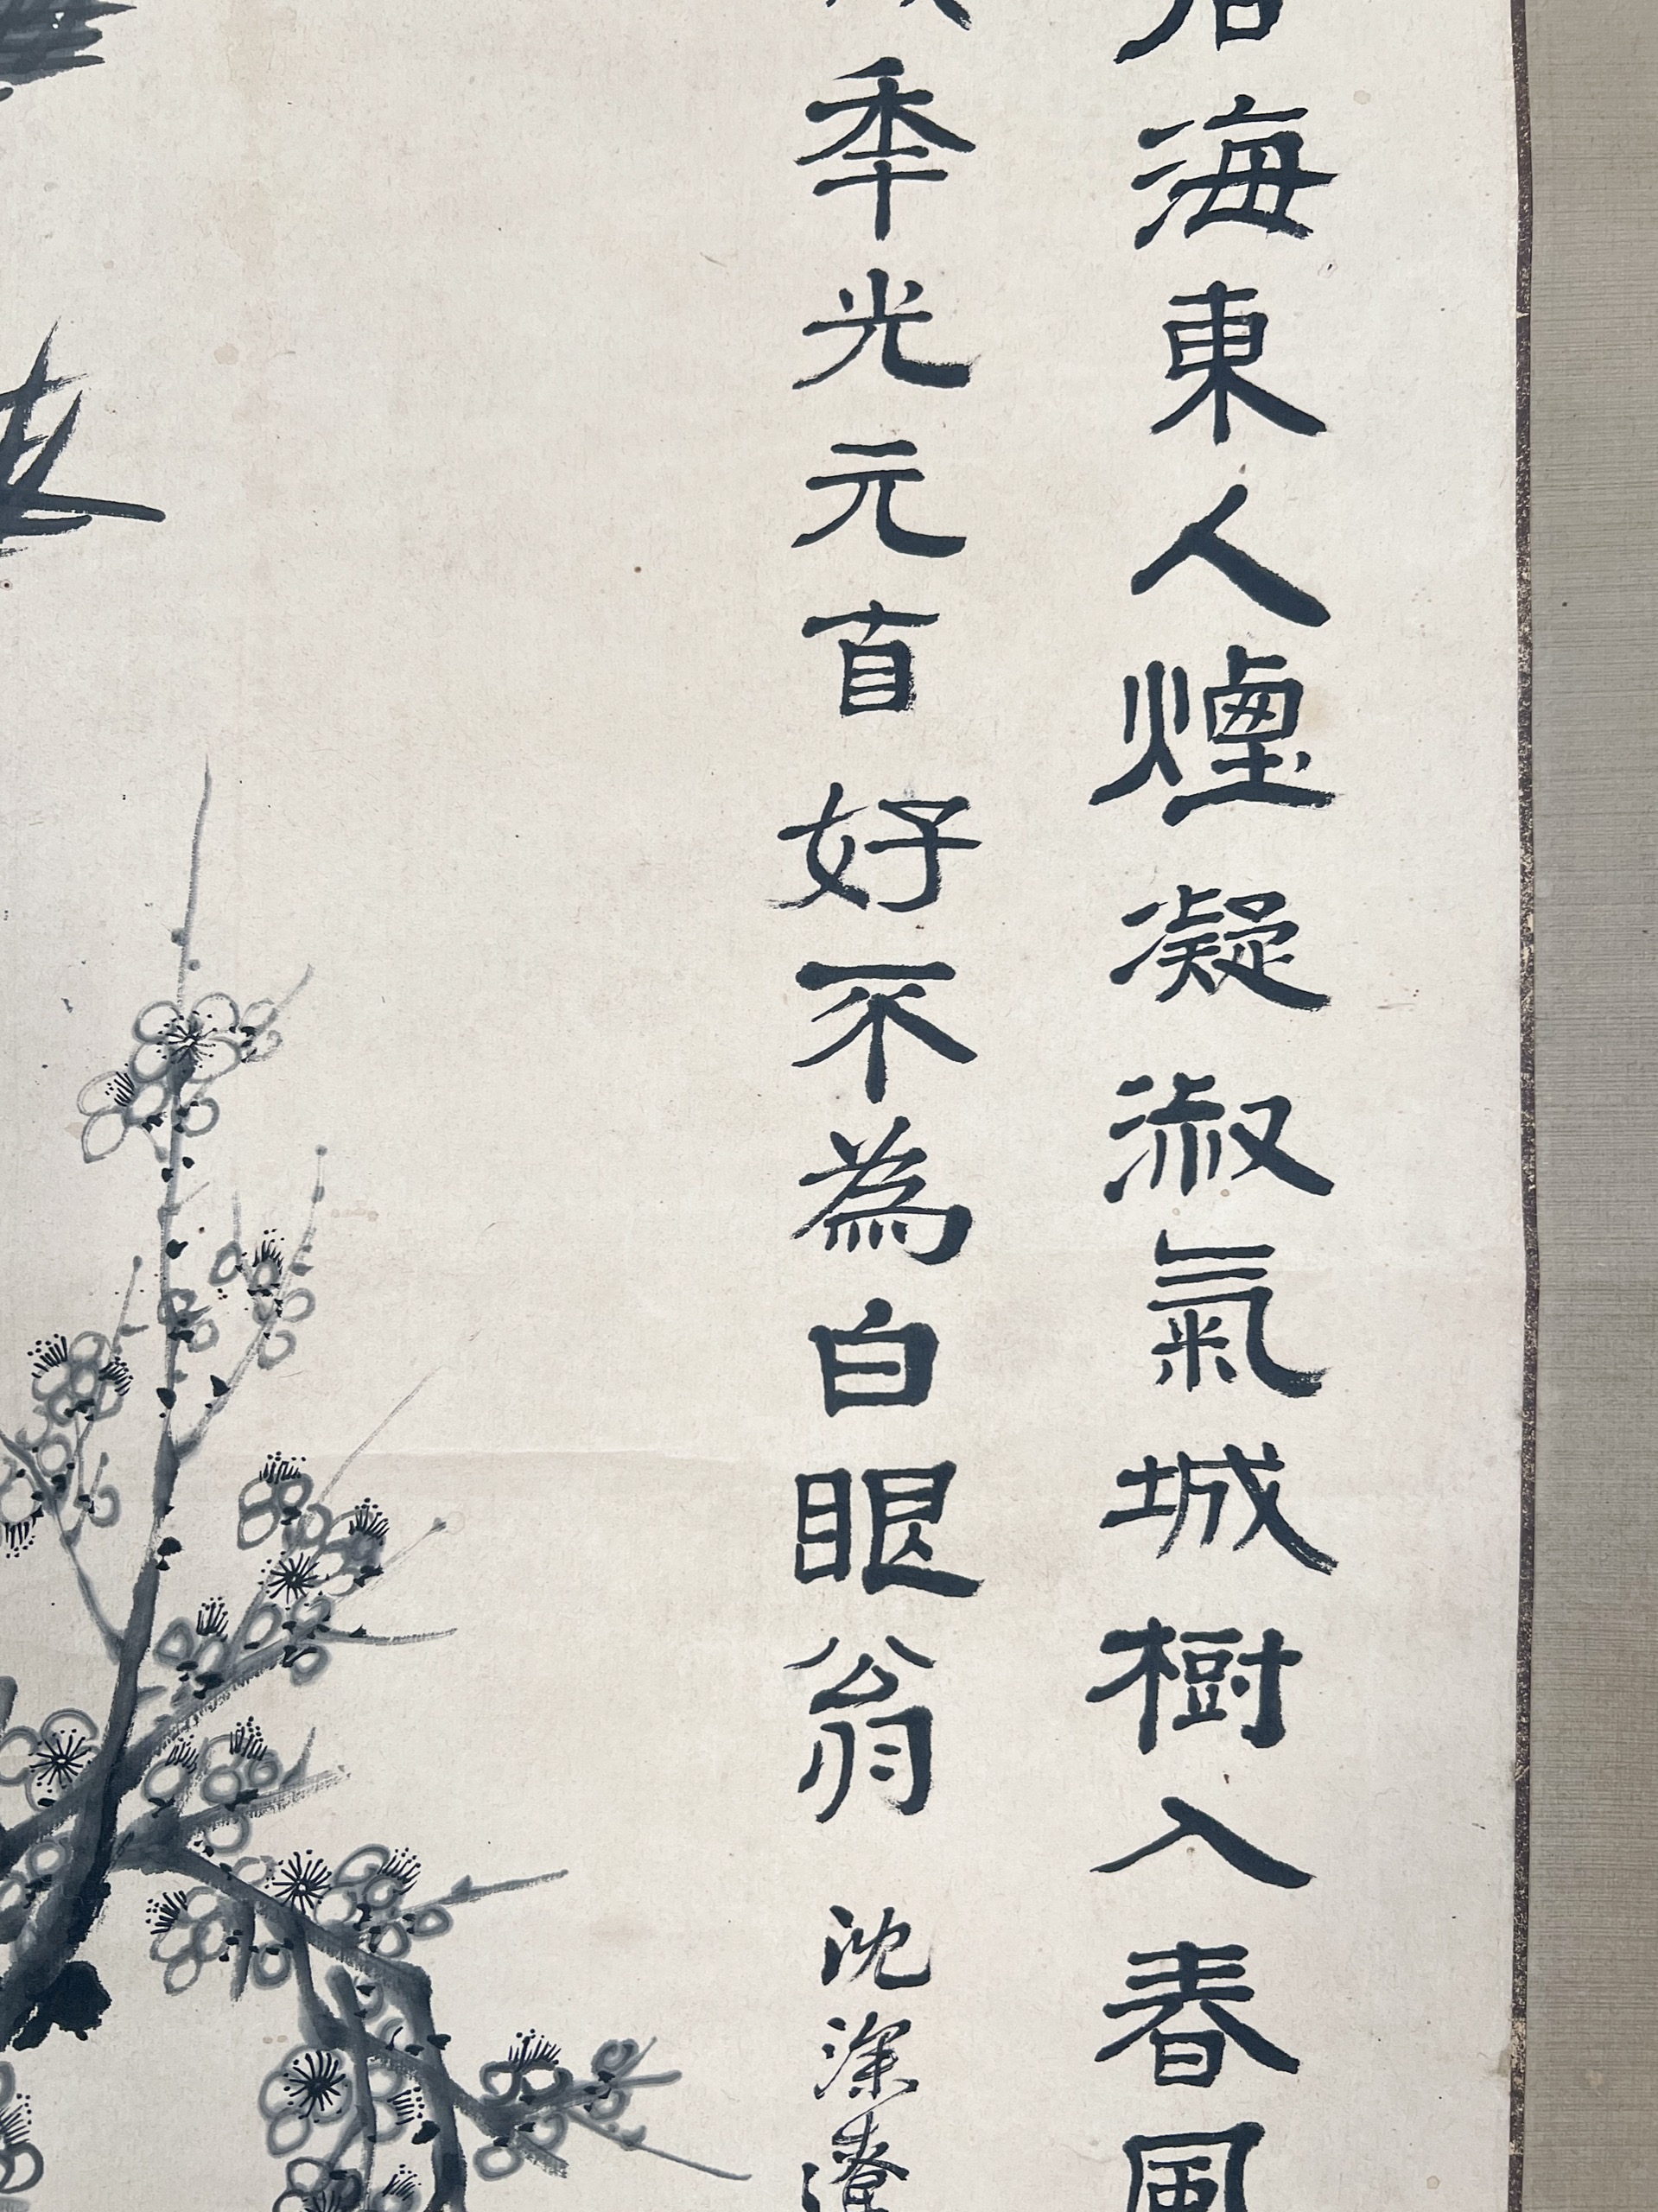 海東人煙凝淑氣城樹入春風
秊光元自好不為白眼翁
沈深